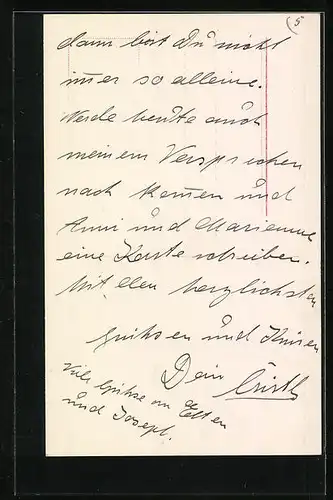 5
dann bist Du nicht
im̄er so alleine.
Werde heute auch
meinem Versprechen
nach kom̄en und
Anni und Marianne
eine Karte schreiben.
Mit den herzlichsten
Grüßen und Küssen
Dein
Viele Grüße an Elten
und Josepf.